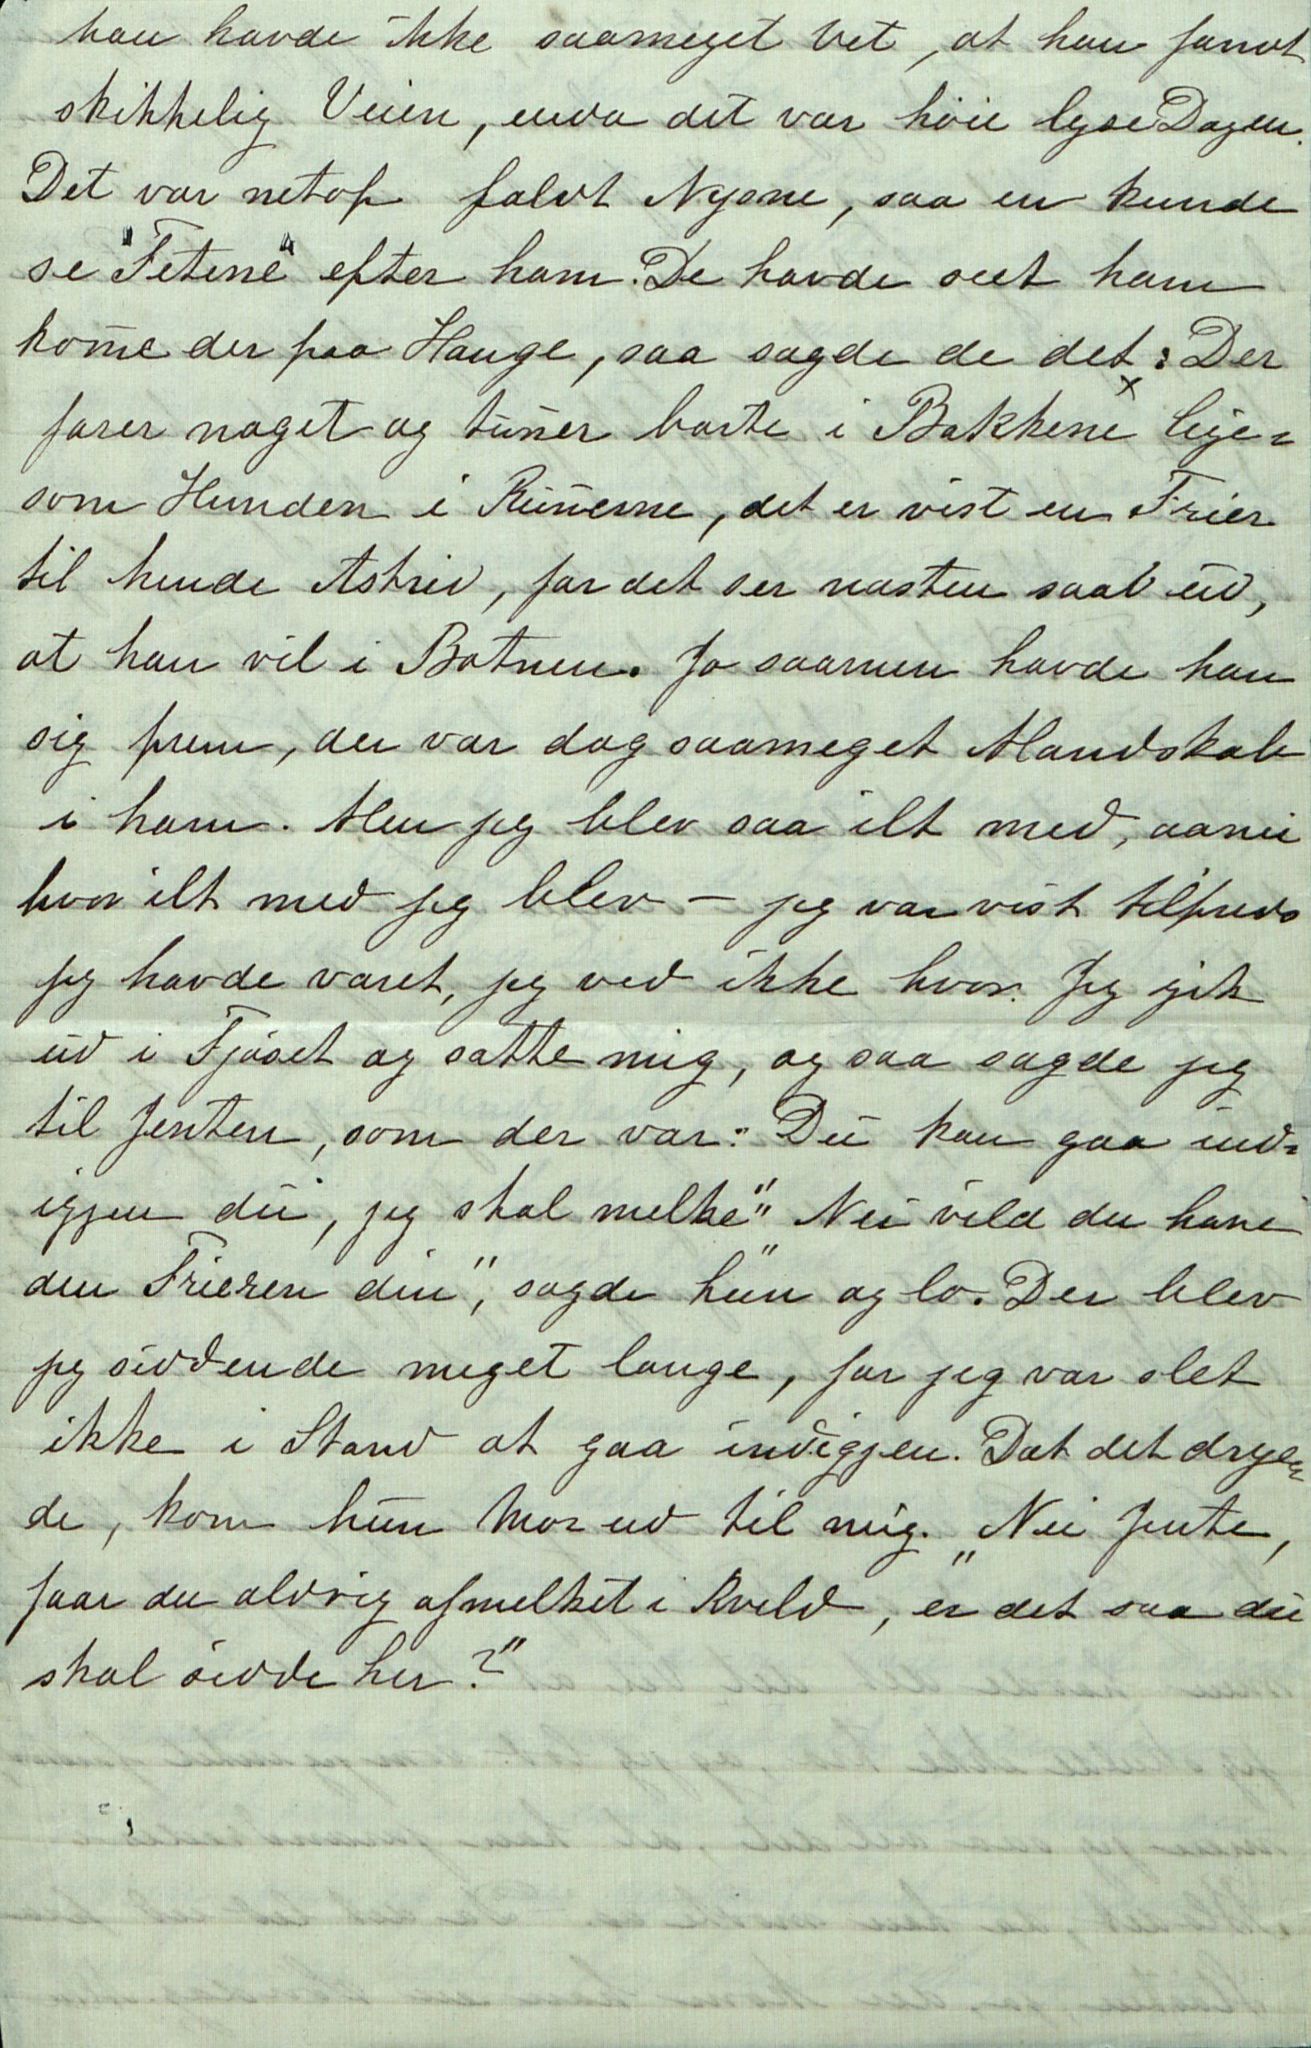 han havde ikke saameget Vet, at han fandt
skikkelig Veien, enda det var høie lyse Dagen.
Det var netop faldt Nysne, saa en kunde
se "Fetene" efter ham. De havde seet ham
kom̄e der paa Hauge, saa sagde de det: Der
farer noget og tum̄ler borte i Bakkene x lige=
som Hunden i Rūnerne, det er vist en Frier
til hende Astrid, for det ser næsten saad ud,
at han vil i Botnen. Jo saamen havde han
sig frem, der var dog saameget Mandskab
i ham. Men jeg blev saa ilt med, aanei
hvor ilt med jeg blev – jeg var vist tilfreds
jeg havde været, jeg ved ikke hvor. Jeg gik
ud i Fjøset og satte mig, og saa sagde jeg
til Jenten, som der var: "Du kan gaa ind=
igjen du, jeg skal melke" "Nei vild du have
den Frieren din", sagde hun og lo. Der blev
jeg siddende meget længe, for jeg var slet
ikke i Stand at gaa indigjen. Dat det dryg=
de, kom hun Mor ud til mig. "Nei Jente,
faar du aldrig afmelket i Kveld, er det saa du
skal sidde her?"